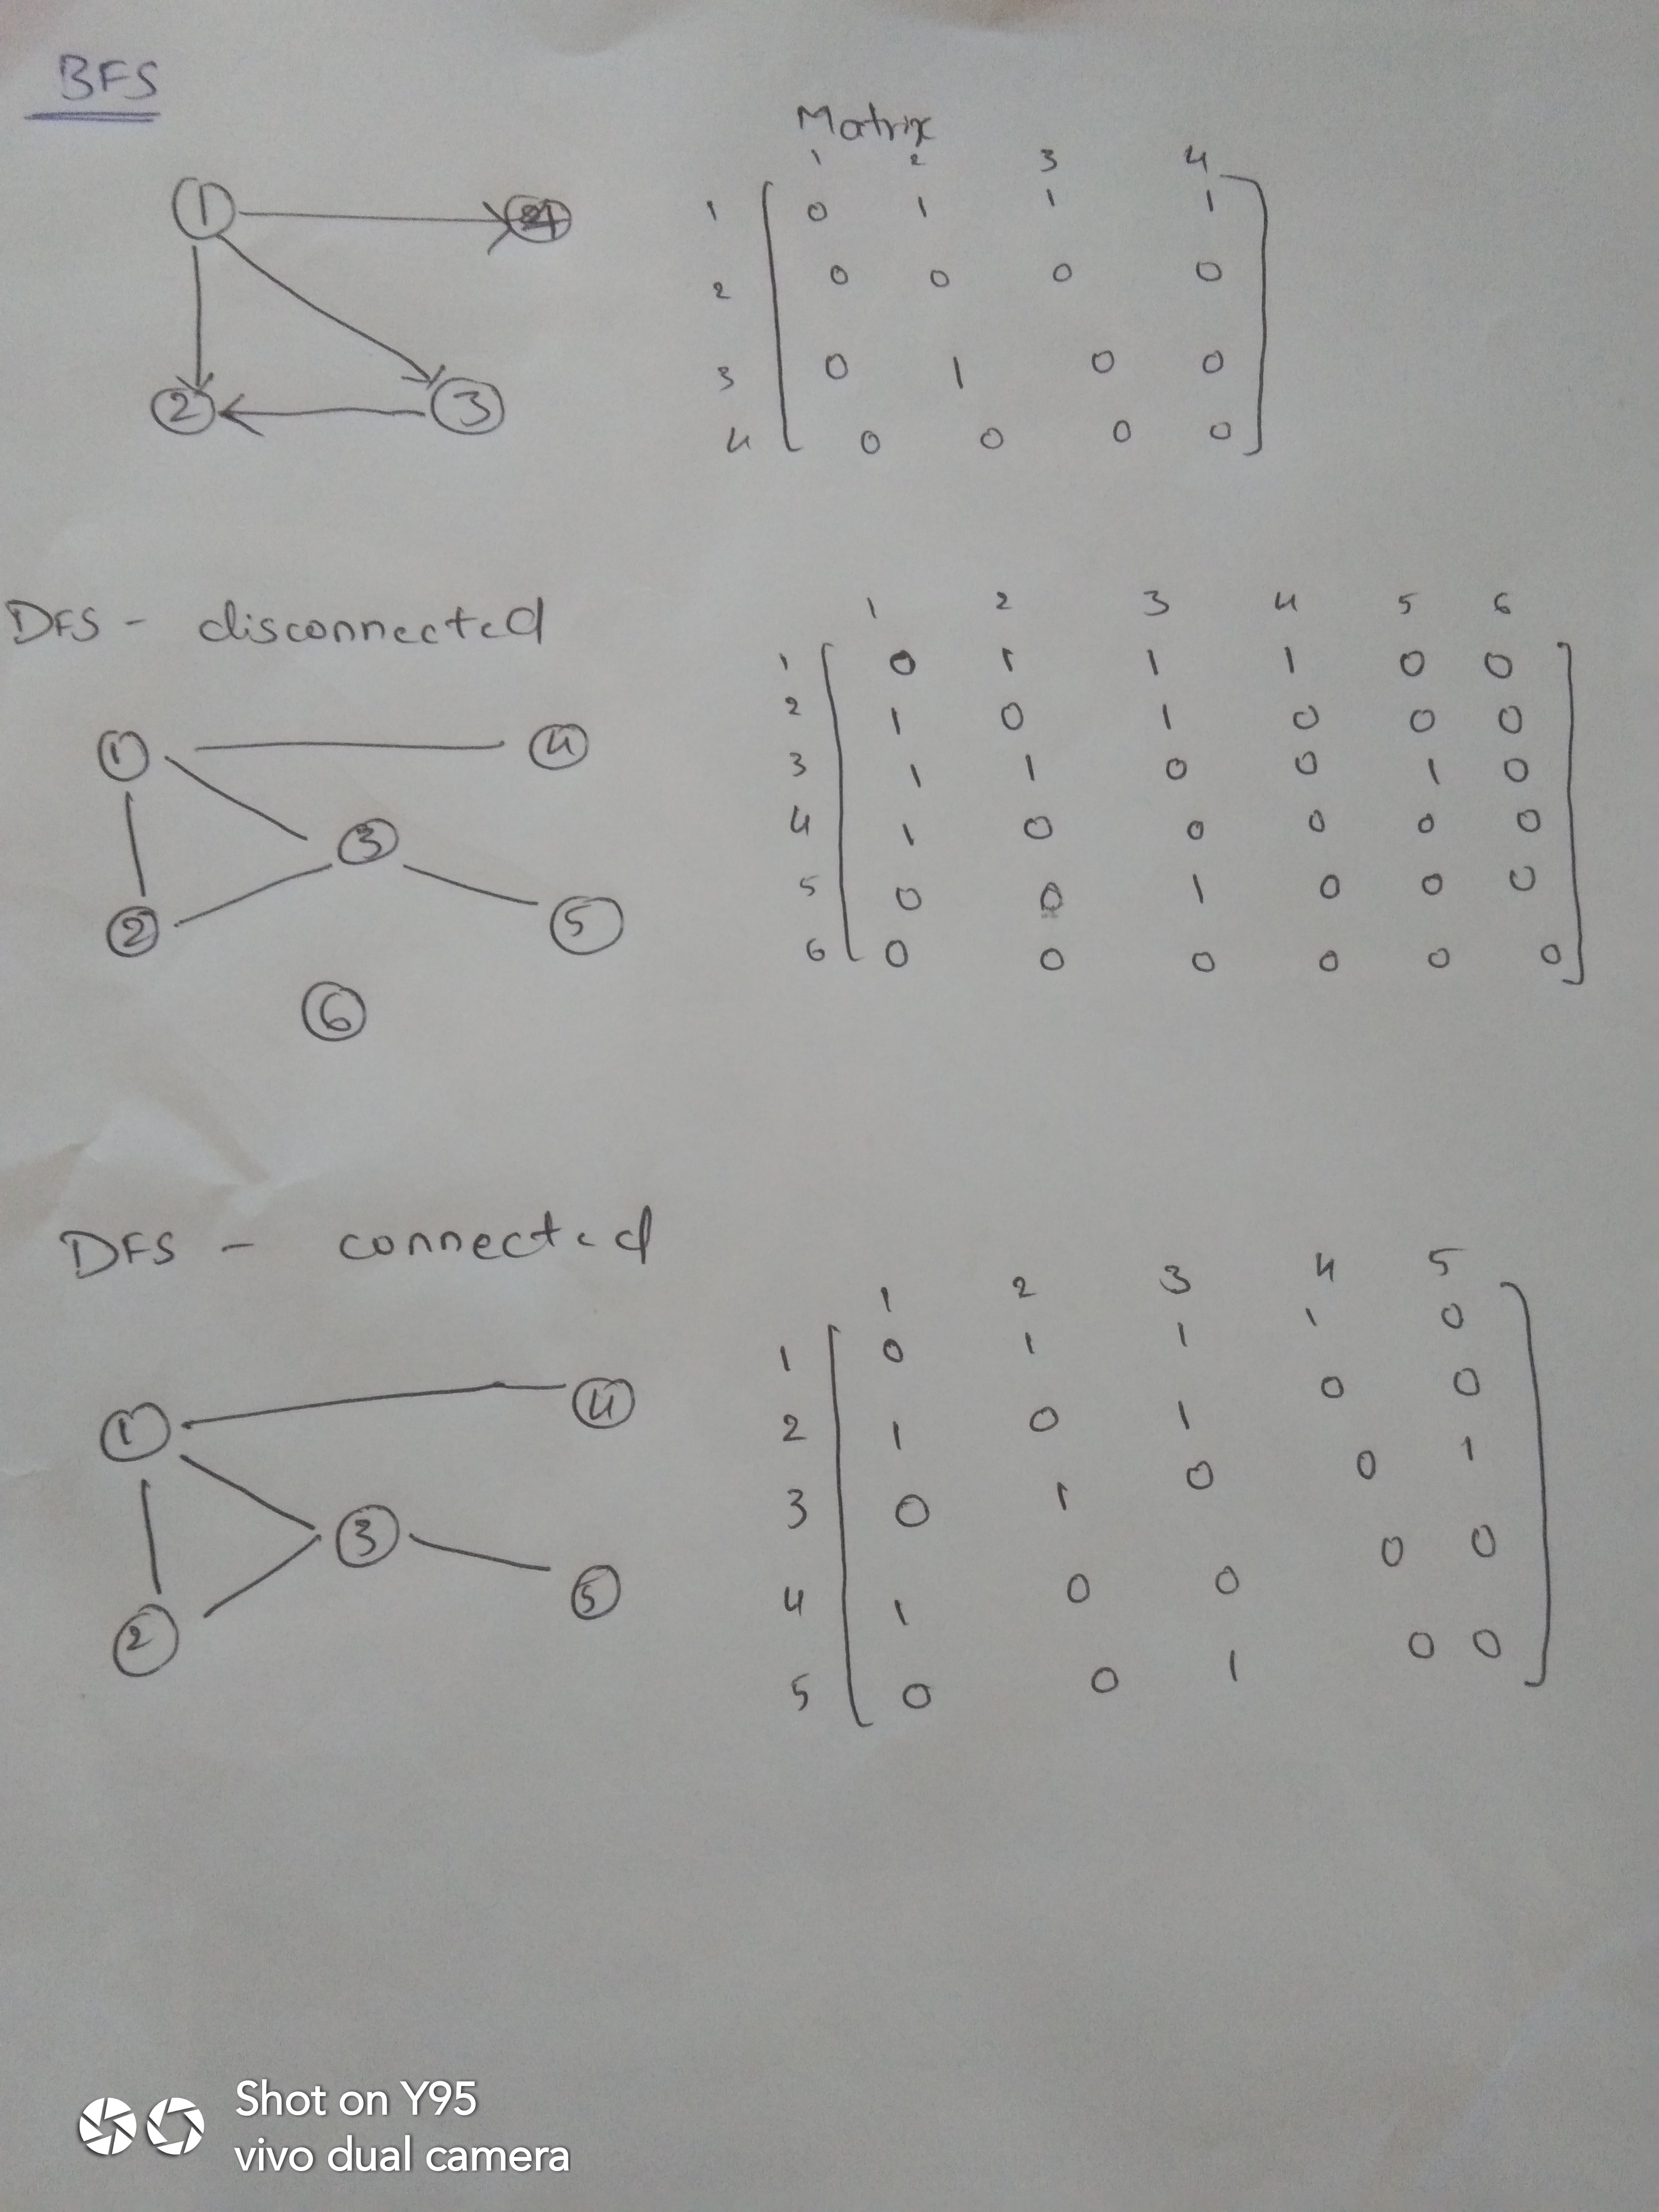 BFS
Matrix
1 2 3 4
1 0 1 1 1
2 0 0 0 0
3 0 1 0 0
4 0 0 0 0
1
2 3
DFS - disconnected
1 2 3 4 5 6
1 0 1 1 1 0 0
2 1 0 1 0 0 0
3 1 1 0 0 1 0
4 1 0 0 0 0 0
5 0 0 1 0 0 0
6 0 0 0 0 0 0
1 4
3
2 5
6
DFS - connected
1 2 3 4 5
1 0 1 1 1 0
2 1 0 1 0 0
3 0 1 0 0 1
4 1 0 0 0 0
5 0 0 1 0 0
1 4
3
5
2
Shot on Y95
vivo dual camera